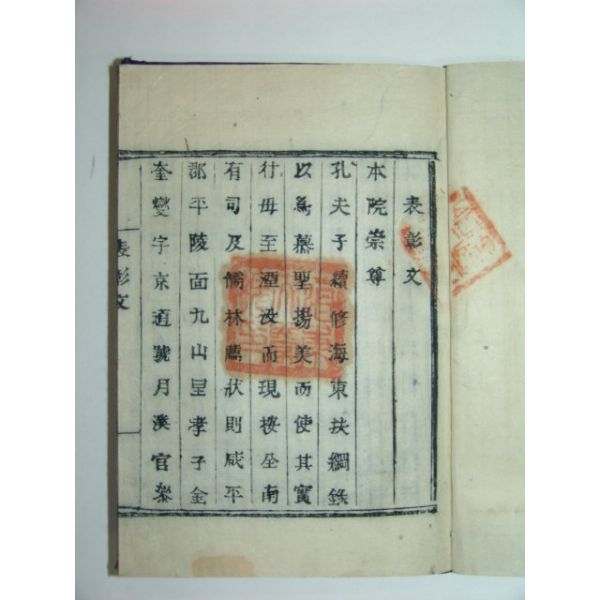 表彰文
本院崇尊
孔夫子續修海東扶綱錄
以爲慕聖揚美而使其實
行毋至湮沒而現按全南
有司及儒林薦狀則咸平
郡平陵面九山里孝子金
奎燮字京道號月溪官參
表彰文